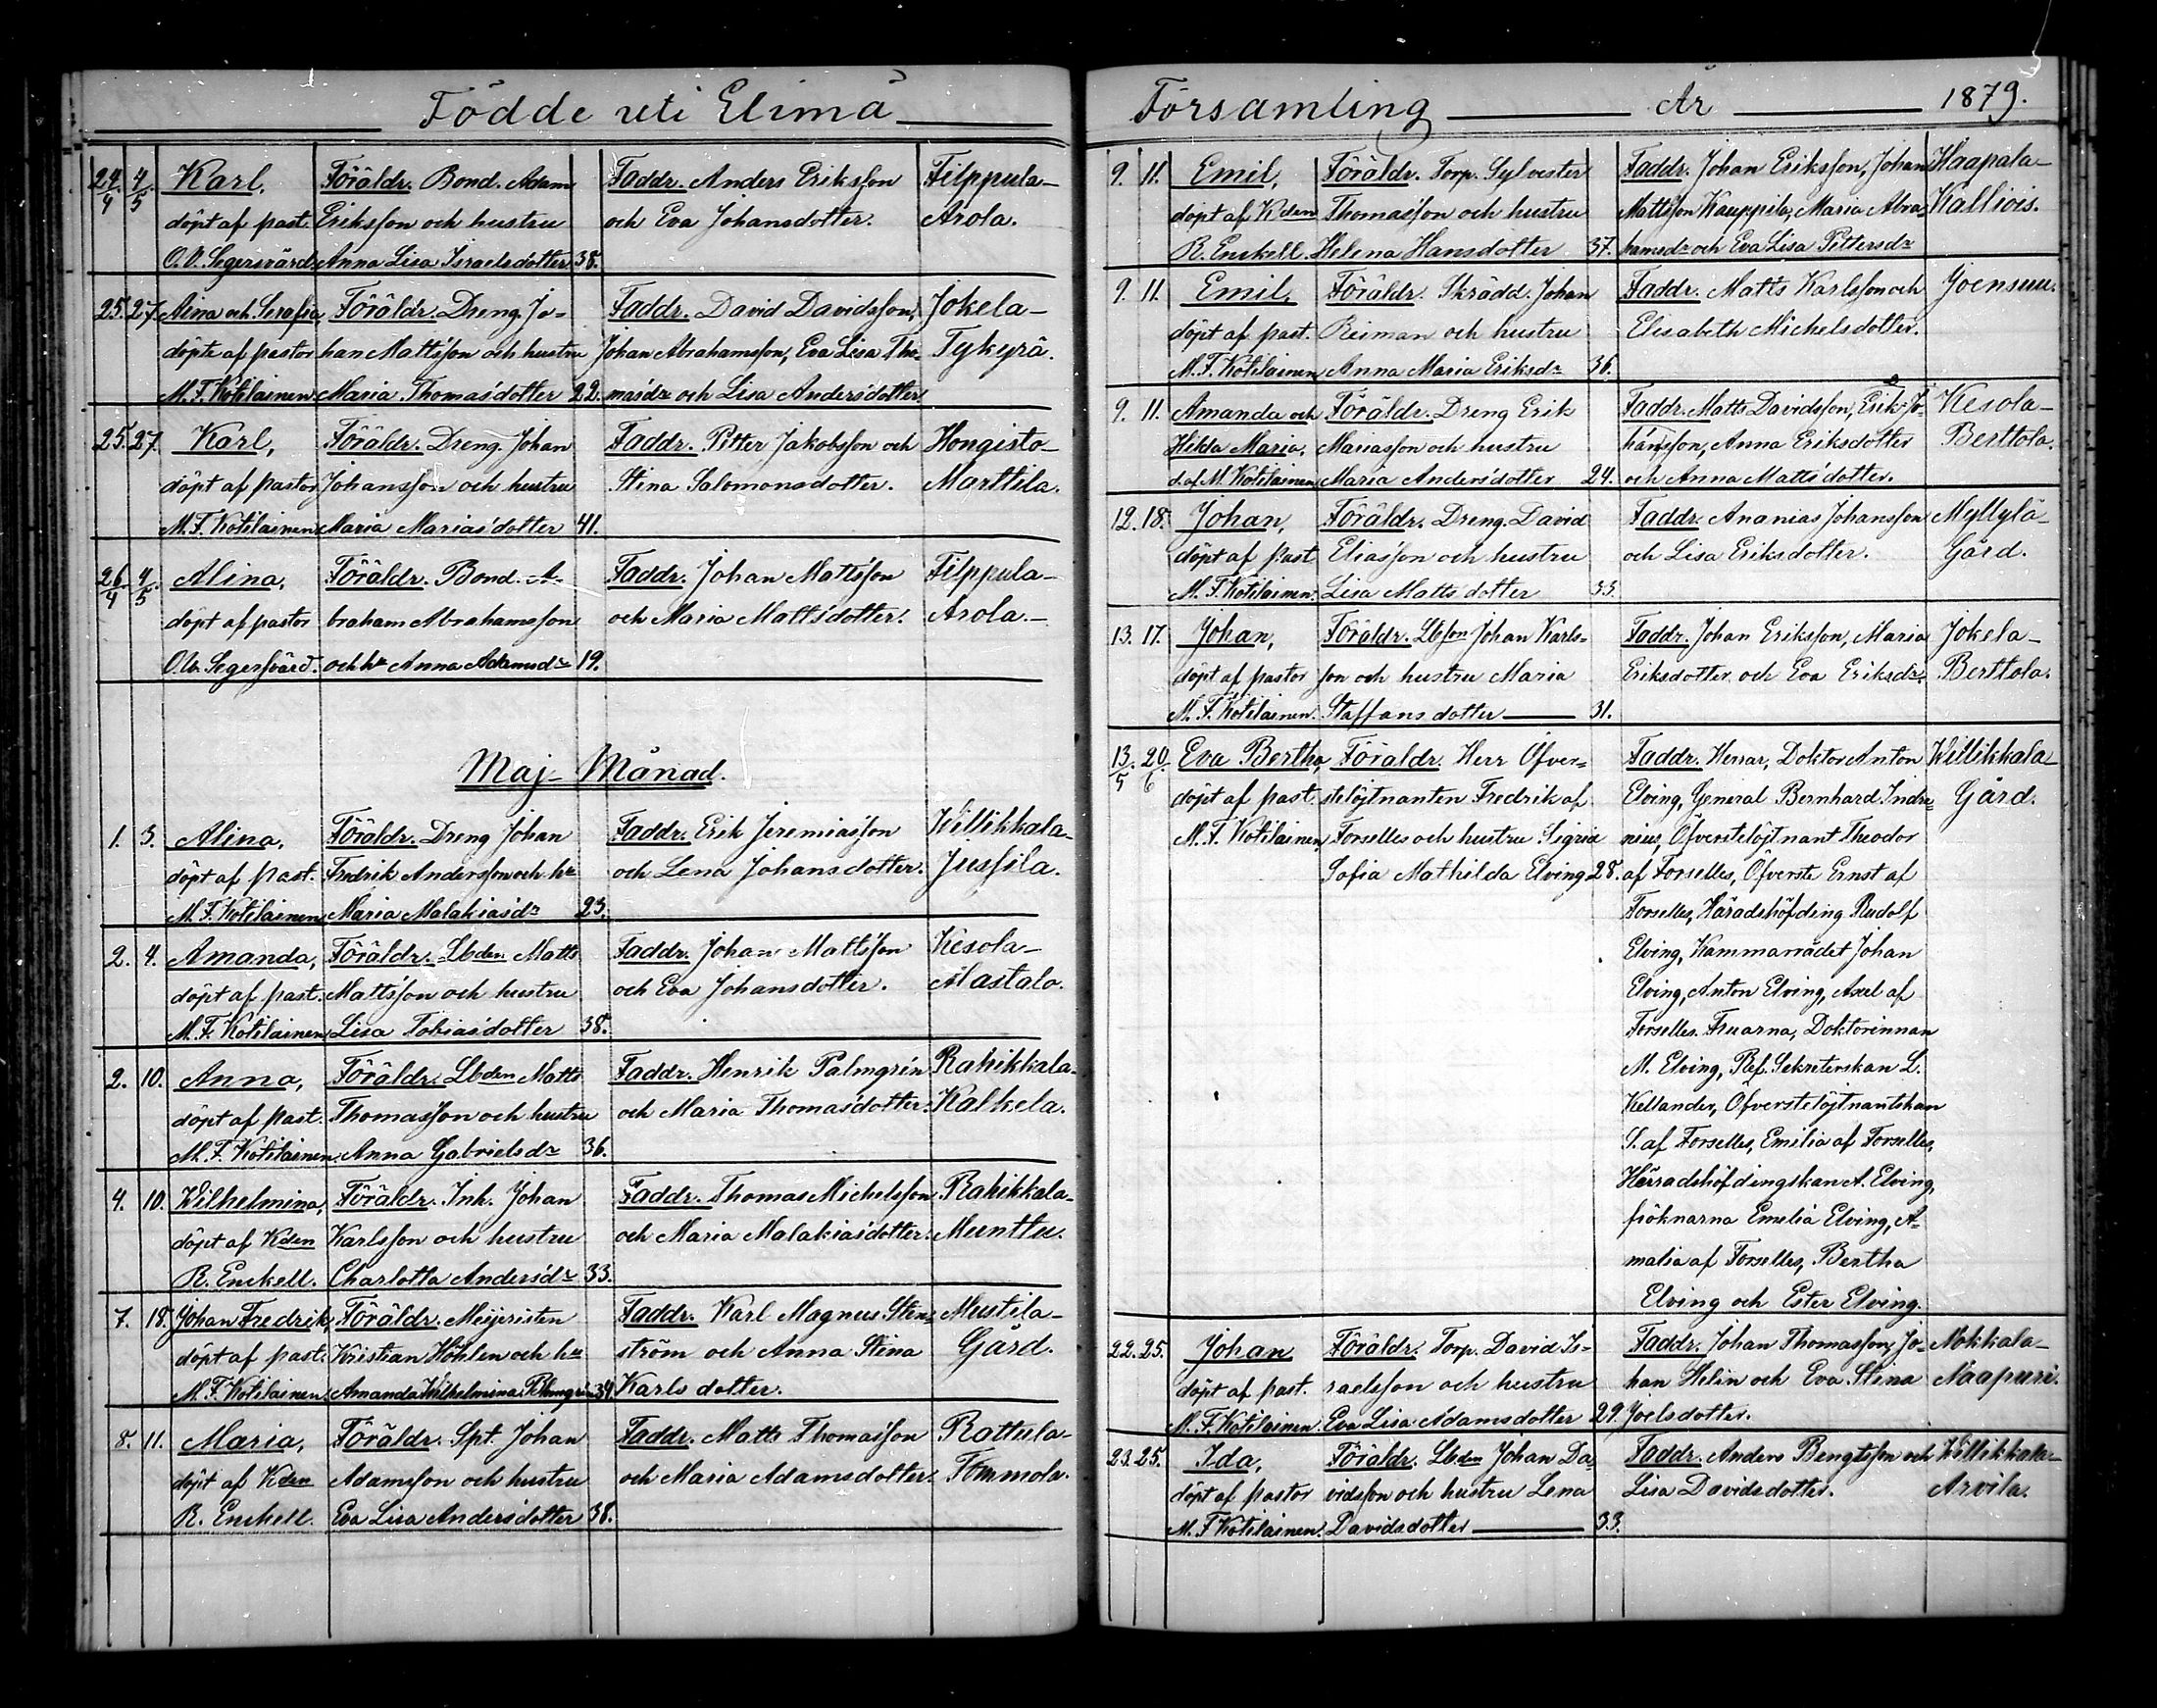 Födde uti Elimä
24/4 4/5 Karl, Föräldr. Bond. Adam Faddr. Anders Eriksson Filppula-
döpt af past. Eriksson och hustru och Eva Johansdotter. Arola.
O. V. Segersvärd Anna Lisa Israelsdotter 38.
25. 27. Aina och Serafia, Föräldr. Dreng. Jo- Faddr. David Davidsson, Jokela-
döpte af pastor han Mattsson och hustru Johan Abrahamsson, Eva Lisa Tho- Tykyrä.
M. F. Kotilainen Maria Thomasdotter 22. masdr och Lisa Andersdotter
25. 27. Karl, Föräldr. Dreng. Johan Faddr. Petter Jakobsson och Hongisto-
döpt af pastor Johansson och hustru Stina Salomonsdotter. Marttila.
M. F. Kotilainen Maria Mariasdotter 41.
26/4 4/5 Alina, Föräldr. Bond. A- Faddr. Johan Mattsson Filppula-
döpt af pastor braham Abrahamsson och Maria Mattsdotter. Arola.
O. W. Segersvärd. och hu Anna Adamsdr 19.
Maj Månad.
1. 3. Alina, Föräldr. Dreng Johan Faddr. Erik Jeremiasson Willikkala-
döpt af past. Fredrik Andersson och hu och Lena Johansdotter. Jusfila.
M. F. Kotilainen Maria Malakiasdr 23.
2. 4. Amanda, Föräldr. Lbden Matts Faddr. Johan Mattsson Kesola-
döpt af past. Mattsson och hustru och Eva Johansdotter. Alastalo.
M. F. Kotilainen Lisa Tobiasdotter 38.
2. 10. Anna, Föräldr. Lbden Matts Faddr. Henrik Palmgrén Rahikkala-
döpt af past. Thomasson och hustru och Maria Thomasdotter. Kalkela.
M. F. Kotilainen. Anna Gabrielsdr 36.
4. 10. Wilhelmina, Föräldr. Inh. Johan Faddr. Thomas Michelsson Rahikkala-
döpt af Kden Karlsson och hustru och Maria Malakiasdotter. Munttu.
R. Enckell. Charlotta Andersdr 33.
7. 18. Johan Fredrik, Föräldr. Meijeristen Faddr. Karl Magnus Sten- Mustila-
döpt af past. Kristian Höhlen och hu ström och Anna Stina Gård.
M. F. Kotilainen. Amanda Wilhelmina 34. Karlsdotter.
8. 11. Maria, Föräldr. Spt. Johan Faddr. Matts Thomasson Rattula-
döpt af Kden Adamsson och hustru och Maria Adamsdotter. Tommola.
R. Enckell. Eva Lisa Andersdotter 38.
Församling År 1879.
9. 11. Emil, Föräldr. Torp. Sylvester Faddr. Johan Eriksson, Johan Haapala-
döpt af Kden Thomasson och hustru Mattsson Kauppila, Maria Abra- Kalliois.
R. Enckell. Helena Hansdotter 37. hamsdr och Eva Lisa Pettersdr
9. 11. Emil, Föräldr. Skrädd. Johan Faddr. Matts Karlsson och Joensuu.
döpt af past. Reiman och hustru Elisabeth Michelsdotter.
M. F. Kotilainen Anna Maria Eriksdr 36.
9. 11. Amanda och Föräldr. Dreng Erik Faddr. Matts Davidsson, Erik Jo- Kesola-
Hilda Maria, Mariasson och hustru hansson, Anna Eriksdotter Berttola.
d. af M. Kotilainen Maria Andersdotter 24. och Anna Mattsdotter.
12. 18. Johan, Föräldr. Dreng. David Faddr. Ananias Johansson Myllylä-
döpt af past Eliasson och hustru och Lisa Eriksdotter. Gård.
M. F. Kotilainen. Lisa Mattsdotter 33.
13. 17. Johan, Föräldr. Lbson Johan Karls- Faddr. Johan Eriksson, Maria Jokela-
döpt af pastor son och hustru Maria Eriksdotter och Eva Eriksdr. Berttola.
M. F. Kotilainen. Staffansdotter 31.
13/5 20/6 Eva Bertha, Föräldr. Herr Öfver- Faddr. Herrar, Doktor Anton Willikkala-
döpt af past. stelöjtnanten Fredrik af Elving, General Bernhard Indre- Gård.
M. F. Kotilainen Forselles och hustru Sigrid nius, Öfverstelöjtnant Theodor
Sofia Mathilda Elving 28. af Forselles, Öfverste Ernst af
Forselles, Häradshöfding Rudolf
Elving, Kammarrådet Johan
Elving, Anton Elving, Axel af
Forselles. Fruarna, Doktorinnan
M. Elving, Ref. Sekreterskan L.
Kellander, Öfverstelöjtnantskan
S. af Forselles, Emilia af Forselles,
Härradshöfdingskan A. Elving,
fröknarna Emelia Elving, A-
malia af Forselles, Bertha
Elving och Ester Elving.
22. 25. Johan Föräldr. Torp. David Is- Faddr. Johan Thomasson, Jo- Mokkala-
döpt af past. raelsson och hustru han Helin och Eva Stina Naapuri.
M. F. Kotilainen Eva Lisa Adamsdotter 29. Joelsdotter.
23. 25. Ida, Föräldr. Lbden Johan Da- Faddr. Anders Bengtsson och Willikkala-
döpt af pastor vidsson och hustru Lena Lisa Davidsdotter. Arvila.
M. F. Kotilainen. Davidsdotter 33.